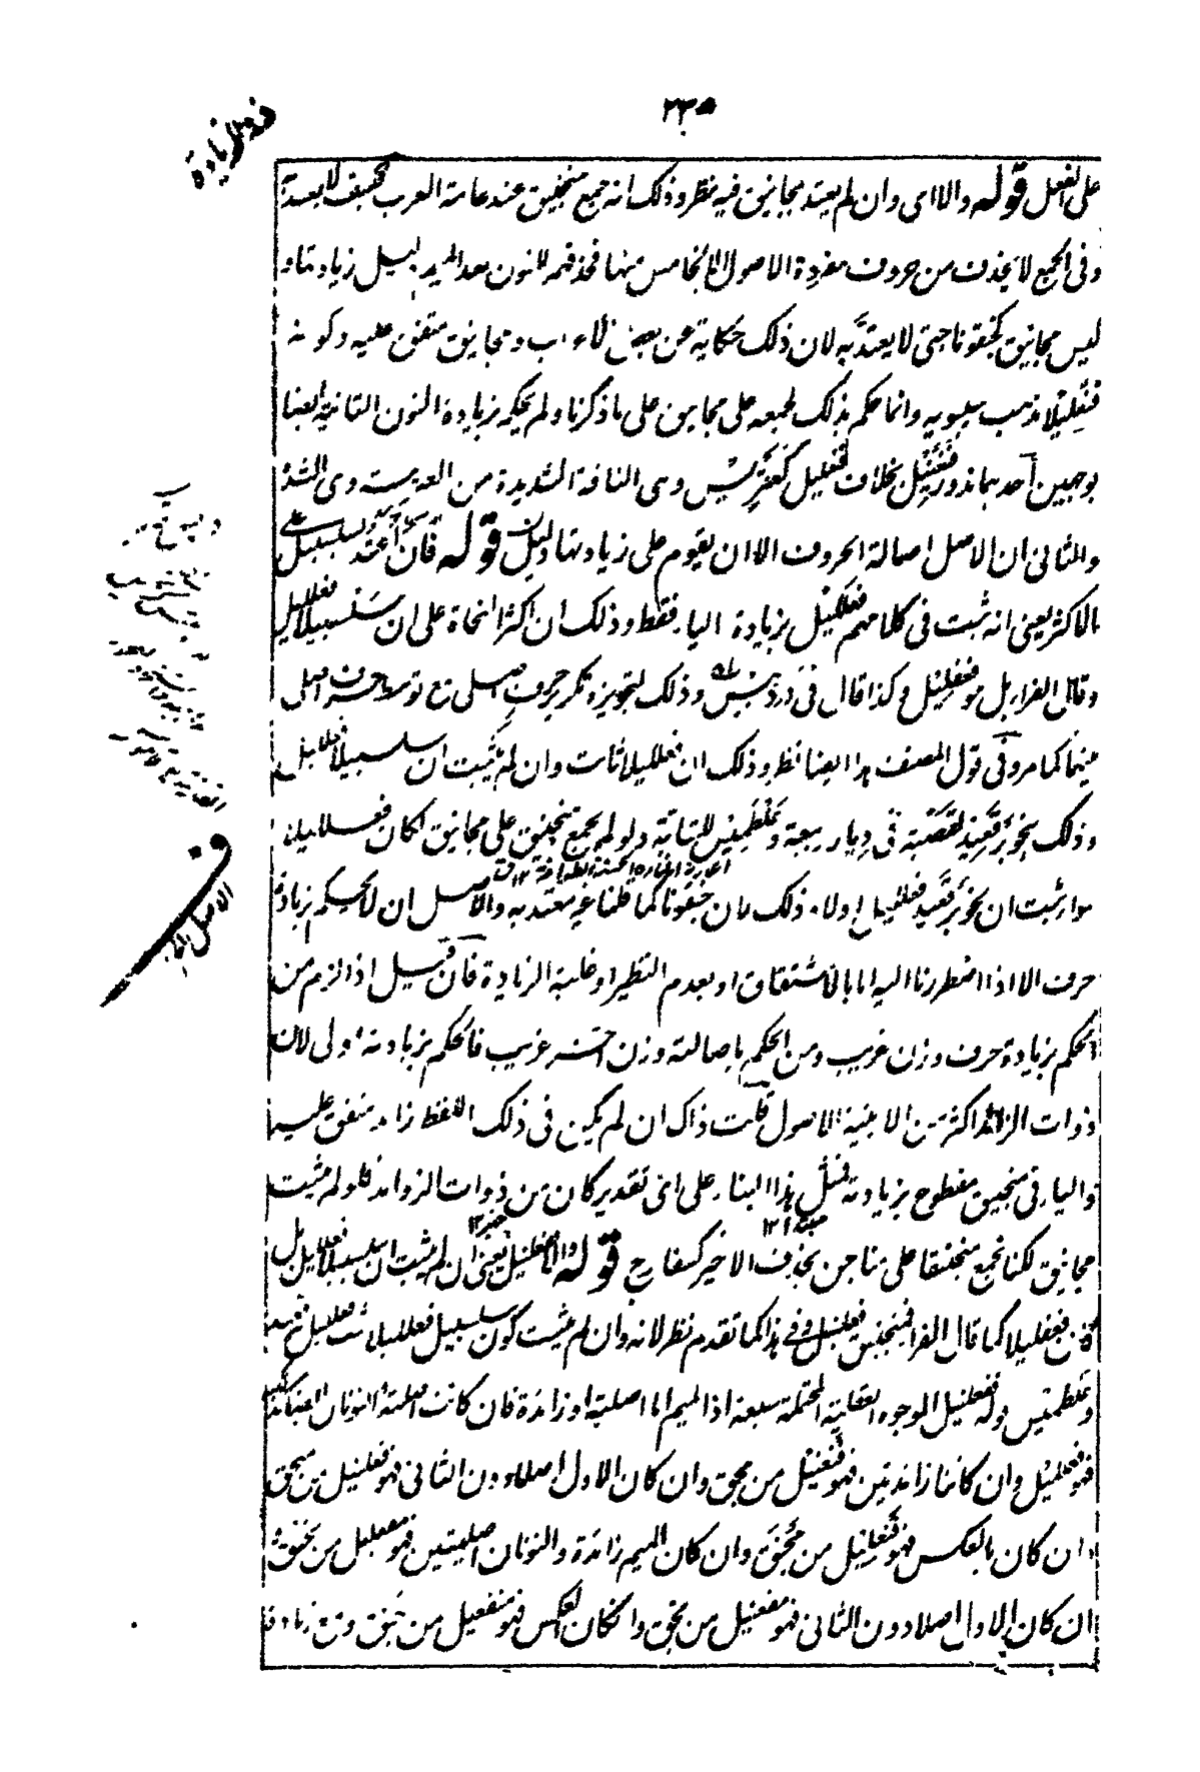 ٢٣٥
ذو الزيادة
على الفعل قوله والا اى وان لم يعتد بمجانيق فيه نظر وذلك انه جمع منجنيق عند عامة العرب فكيف لا يعتد به
وفى الجمع لا يحذف من حروف مفرده الاصول الا الخامس منها فحذفهم النون بعد الميم دليل زيادتها و
ليس مجانيق كجنقونا حتى لا يعتد به لان ذلك حكاية عن بعض الاعراب ومجانيق متفق عليه وكونه
فنعليلا مذهب سيبويه وانما حكم بذلك لجمعه على مجانيق على ما ذكرنا ولم يحكم بزيادة النون الثانية ايضا
بوجهين احدهما ندور فنعنيل بخلاف فنعليل كعنتريس وهى الناقة الشديدة من العترسة وهى الشدة
والثانى ان الاصل اصالة الحروف الا ان يقوم على زيادتها دليل قوله فان اعتد بسلسبيل على
الاكثر يعنى انه ثبت فى كلامهم فعلليل بزيادة الياء فقط وذلك ان اكثر النحاة على ان سلسبيلا فعلليل
وقال الفراء بل هو فعفليل وكذا قال فى دردبيس وذلك لتجويزه تكرير حرف اصلى مع توسط حرف اصلى
بينهما كما مر وفى قول المصنف هذا ايضا نظر وذلك ان فعلليلا ثابت وان لم يثبت ان سلسبيلا فعلليل
وذلك بنحو برقعيد لقصبة فى ديار ربيعة وعلطميس للشابة ولو لم يجمع منجنيق على مجانيق لكان فعلليلا
سواء ثبت ان نحو برقعيد فعلليل او لا وذلك لان جنقونا كما قلنا غير معتد به والاصل ان لا يحكم بزيادة
حرف الا اذا اضطررنا اليه اما بالاشتقاق او بعدم النظير او غلبة الزيادة فان قيل اذا لزم من
الحكم بزيادة حرف وزن غريب ومن الحكم باصالته وزن آخر غريب فالحكم بزيادته اولى لان
ذوات الزوائد اكثر من الابنية الاصول قلت ذاك ان لم يكن فى ذلك اللفظ زائد متفق عليه
والياء فى منجنيق مقطوع بزيادته فمثل هذا البناء على اى تقدير كان من ذوات الزوائد فلو لم يثبت
مجانيق لكنا نجمع منجنيقا على مناجن بحذف الاخير كسفارج قوله والا ففعلنيل يعنى ان لم يثبت ان سلسبيلا فعلليل بل
كان فعفليلا كما قال الفراء فمنجنيق فعلنيل وفى هذا كما تقدم نظر لانه وان لم يثبت كون سلسبيل فعلليلا ثبت فعلليل بنحو برقعيد
وعلطميس قوله ففعلنيل الوجوه العقلية المحتملة سبعة اذ الميم اما اصلية او زائدة فان كانت اصلية فالنونان ايضا كذلك
فهو فعلليل وان كانتا زائدتين فهو فنعنيل من مجق وان كان الاول اصلا دون الثانى فهو فعلنيل من منجق
وان كان بالعكس فهو فنعليل من مجنق وان كان الميم زائدة والنونان اصليتين فهو مفعليل من نجنق و
ان كان الاول اصلا دون الثانى فهو مفعنيل من نجق وان كان بالعكس فهو منفعيل من جنق ومع زيادة